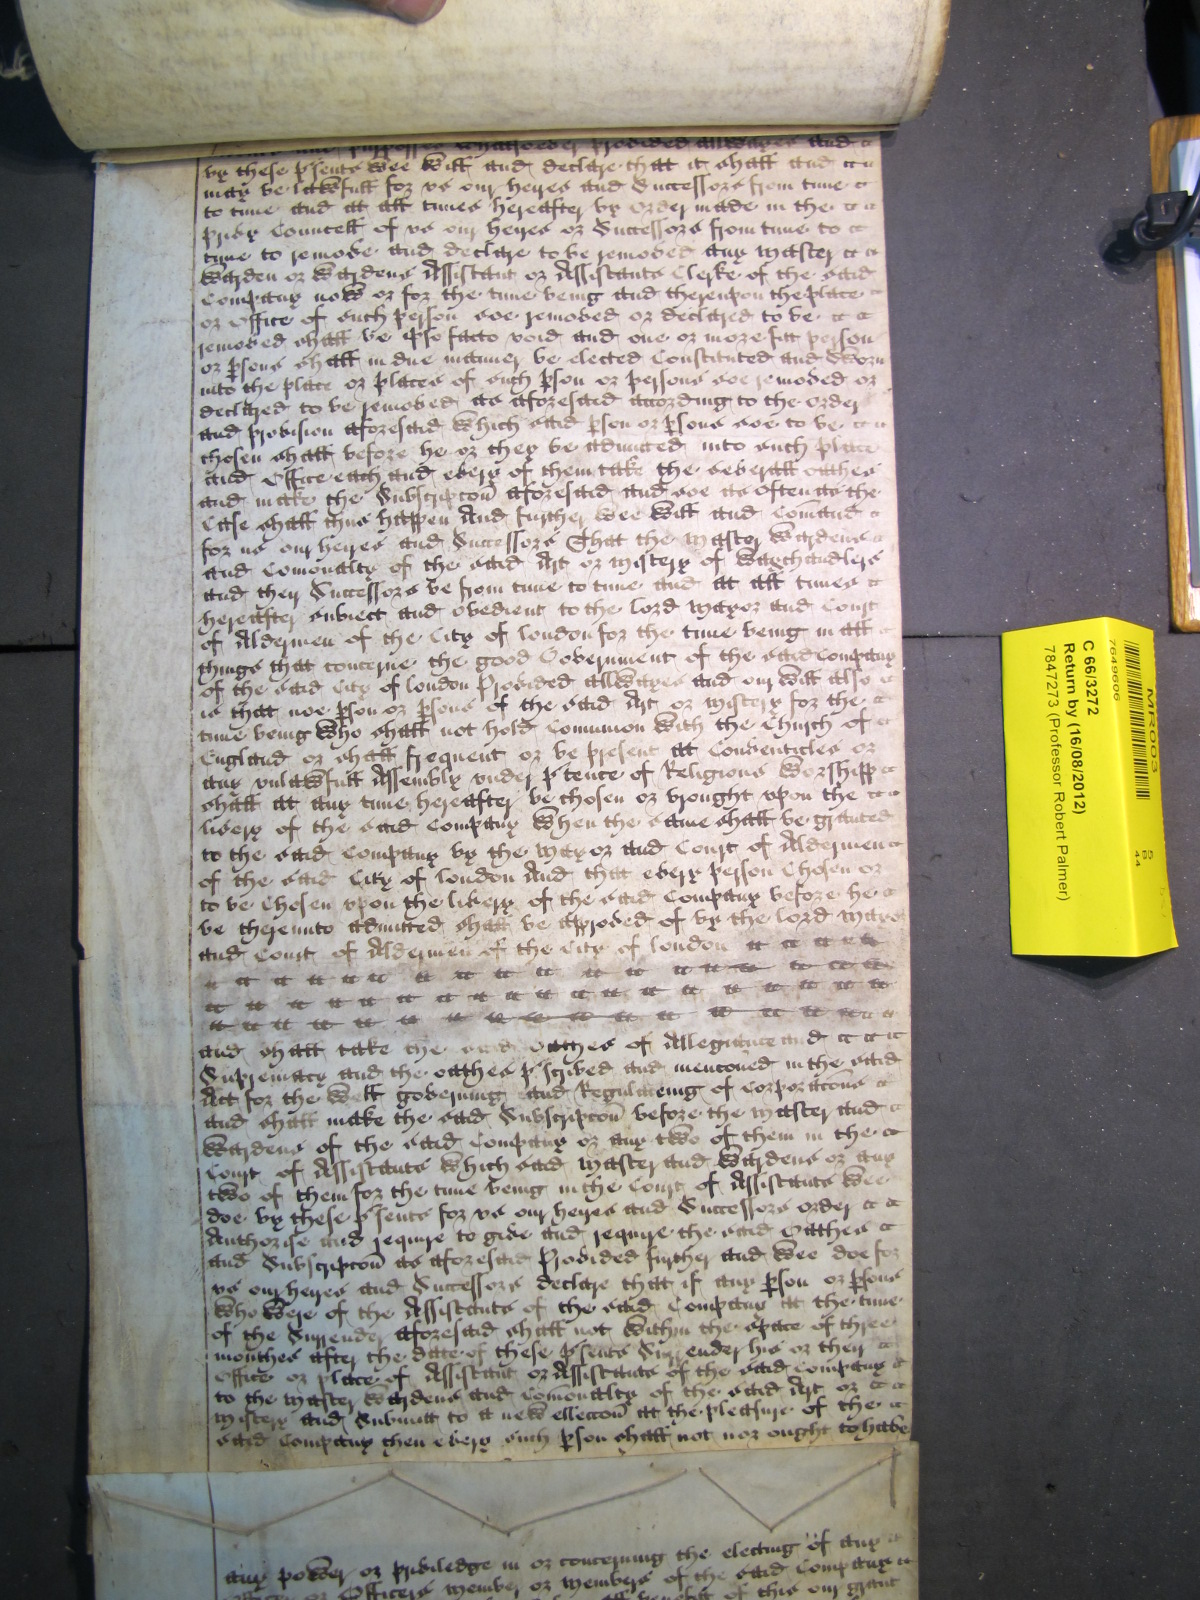 and purposes whatsoever Provided allwayes and
by these psents wee will and declare that it shall and
may be lawfull for us our heyres and Successors from time
to time and at all times hereafter by Order made in the
privy Councell of us our heyres or Successors from time to
time to remove and declare to be removed any Master
Warden or Wardens Assistant or Assistants Clerke of the said
Company now or for the time being and thereupon the place
or Office of such person soe removed or declared to be
removed shall be ipso facto void and one or more fitt person
or psons shall in due manner be elected Constituted and sworn
into the place or places of such pson or persons soe removed or
declared to be removed as aforesaid according to the order
and provision aforesaid Which said pson or psons soe to be
chosen shall before he or they be admitted into such place
and Office each and every of them take the severall oathes
and make the Subscripcon aforesaid and soe as often as the
Case shall thus happen And further wee Will and Comand
for us our heyres and Successors That the Master Wardens
and Comonalty of the said Art or Mistery of Waxchandlers
and their Successors be from time to time and at all times
hereafter subiect and obedient to the Lord Mayor and Court
of Aldermen of the City of London for the time being in all
things that concerne the good Government of the said Company
of the said City of London Provided allwayes and our Will also
is that noe pson or psons of the said Art or Mistery for the
time being Who shall not hold Communion with the Church of
England or shall frequent or be present at Conventicles or
any unlawfull Assembly under ptence of Religious Worshipp
shall at any time hereafter be chosen or brought upon the
livery of the said Company When the same shall be granted
to the said Company by the Mayor and Court of Aldermen
of the said City of London And that every person Chosen or
to be Chosen upon the livery of the said Company before he
be thereunto admitted shall be approved of by the Lord Mayor
and Court of Aldermen of the City of London
and shall take the said Oathes of Allegiance and
Supremacy and the oathes pscribed and menconed in the said
Act for the Well governing and Regulateing of Corporacons
and shall make the said Subscripcon before the Master and
Wardens of the said Company or any two of them in the
Court of Assistants Which said Master and Wardens or any
two of them for the time being in the Court of Assistants Wee
doe by these psents for us our heyres and Successors order
Authorise and require to give and require the said Oathes
and Subscripcon as aforesaid Provided further and Wee doe for
us our heyres and Successors declare that if any pson or psons
Who Were of the Assistants of the said Company at the time
of the Surrender aforesaid shall not Within the space of three
monthes after the date of these psents Surrender his or their
Office or place of Assistant or Assistants of the said Company
to the Master Wardens and Comonalty of the said Art or
Mistery and Submitt to a new elleccon at the pleasure of the
said Company then every such pson shall not nor ought to have
any power or priviledge in or concerning the electing of any
or Officers member or members of the said Company
of this our grant
MR003
7649606
C 66/3272
Return by (16/08/2012)
7847273 (Professor Robert Palmer)